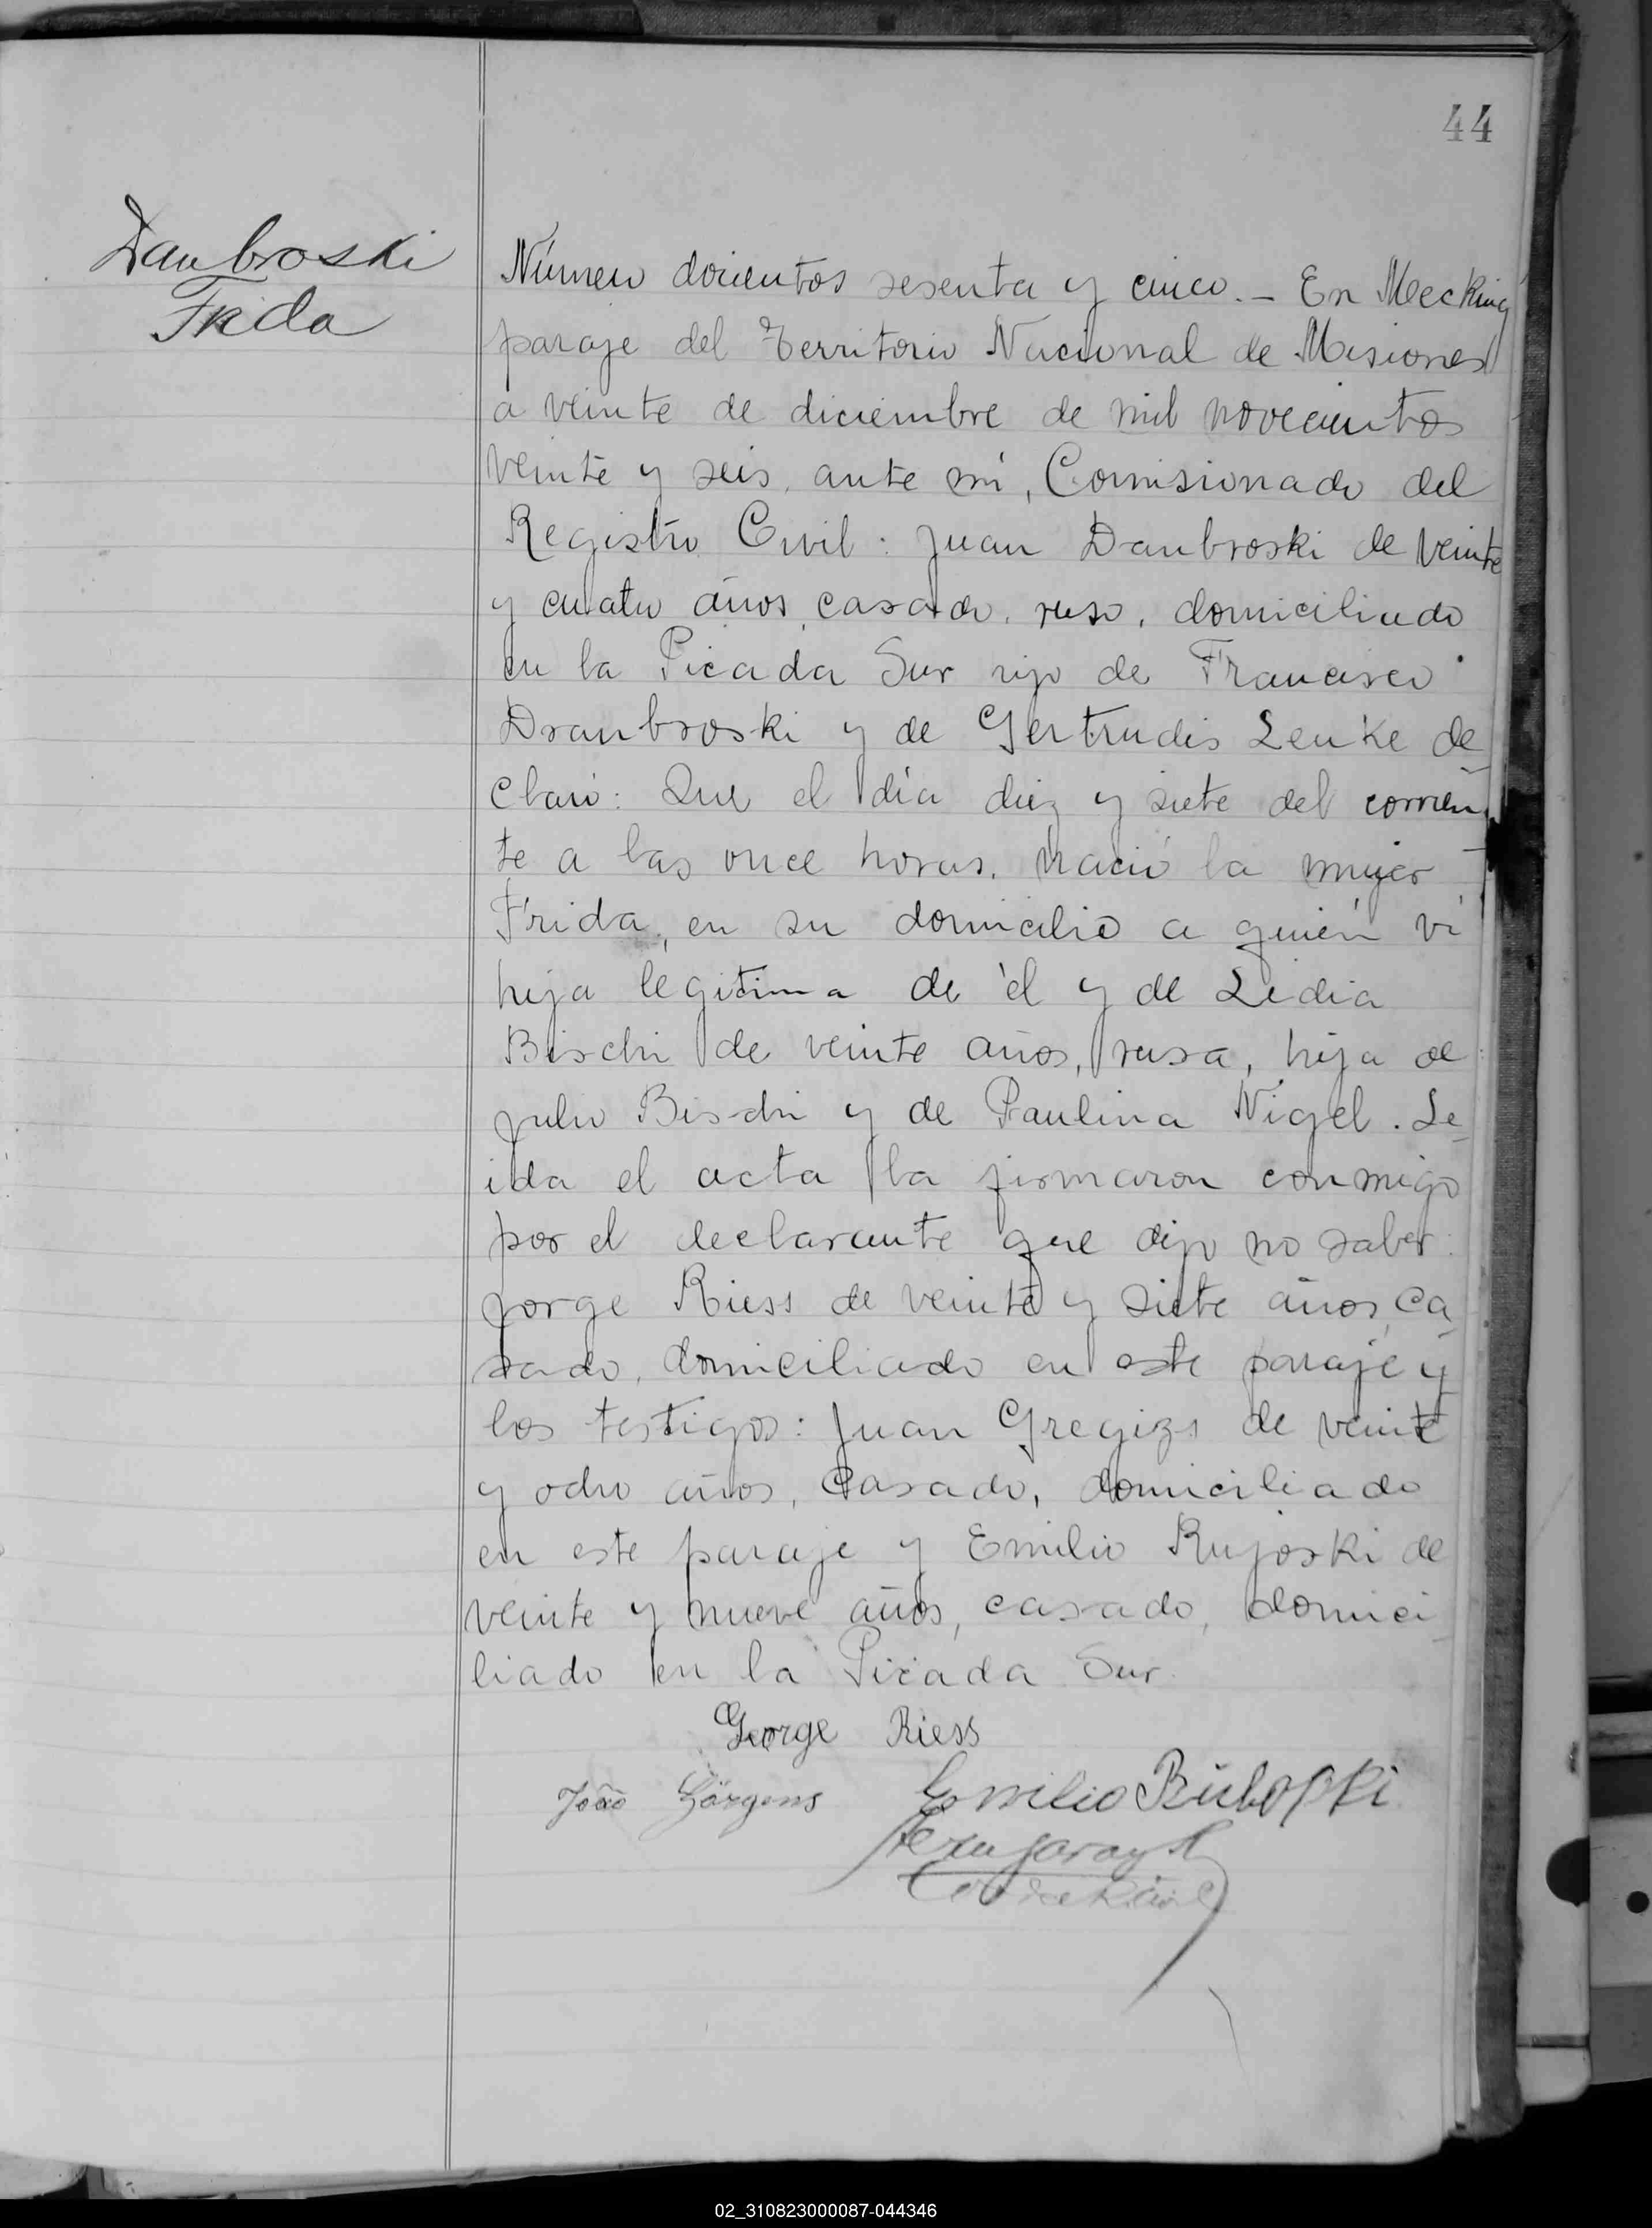 44
Danbroski
Frida
Número docientos sesenta y cinco.- En Mecking
paraje del Territorio Nacional de Misiones
a veinte de diciembre de mil novecientos
veinte y seis, ante mi, Comisionado del
Registro Civil: Juan Danbroski de veinte
y cuatro años, casado, ruso, domiciliado
en la Picada Sur ijo de Francisco
Dranbroski y de Gertrudis Lenke de-
claró: Que el día diez y siete del corrien-
te a las once horas, nació la mujer
Frida, en su domicilio a quién ví
hija légitima de él y de Lidia
Bischi de veinte años, rusa, hija de
Julio Bischi y de Paulina Nigel. Le-
ida el acta la firmaron conmigo
por el declarante que dijo no saber:
Jorge Riess de veinte y siete años, ca-
sado, domiciliado en este paraje y
los testigos: Juan Gregizs de veinte
y ocho años, casado, domiciliado
en este paraje y Emilio Rujoski de
veinte y nueve años, casado, domici-
liado en la Picada Sur.
George Riess
João Görgens Emilio Rubopki
02_310823000087-044346